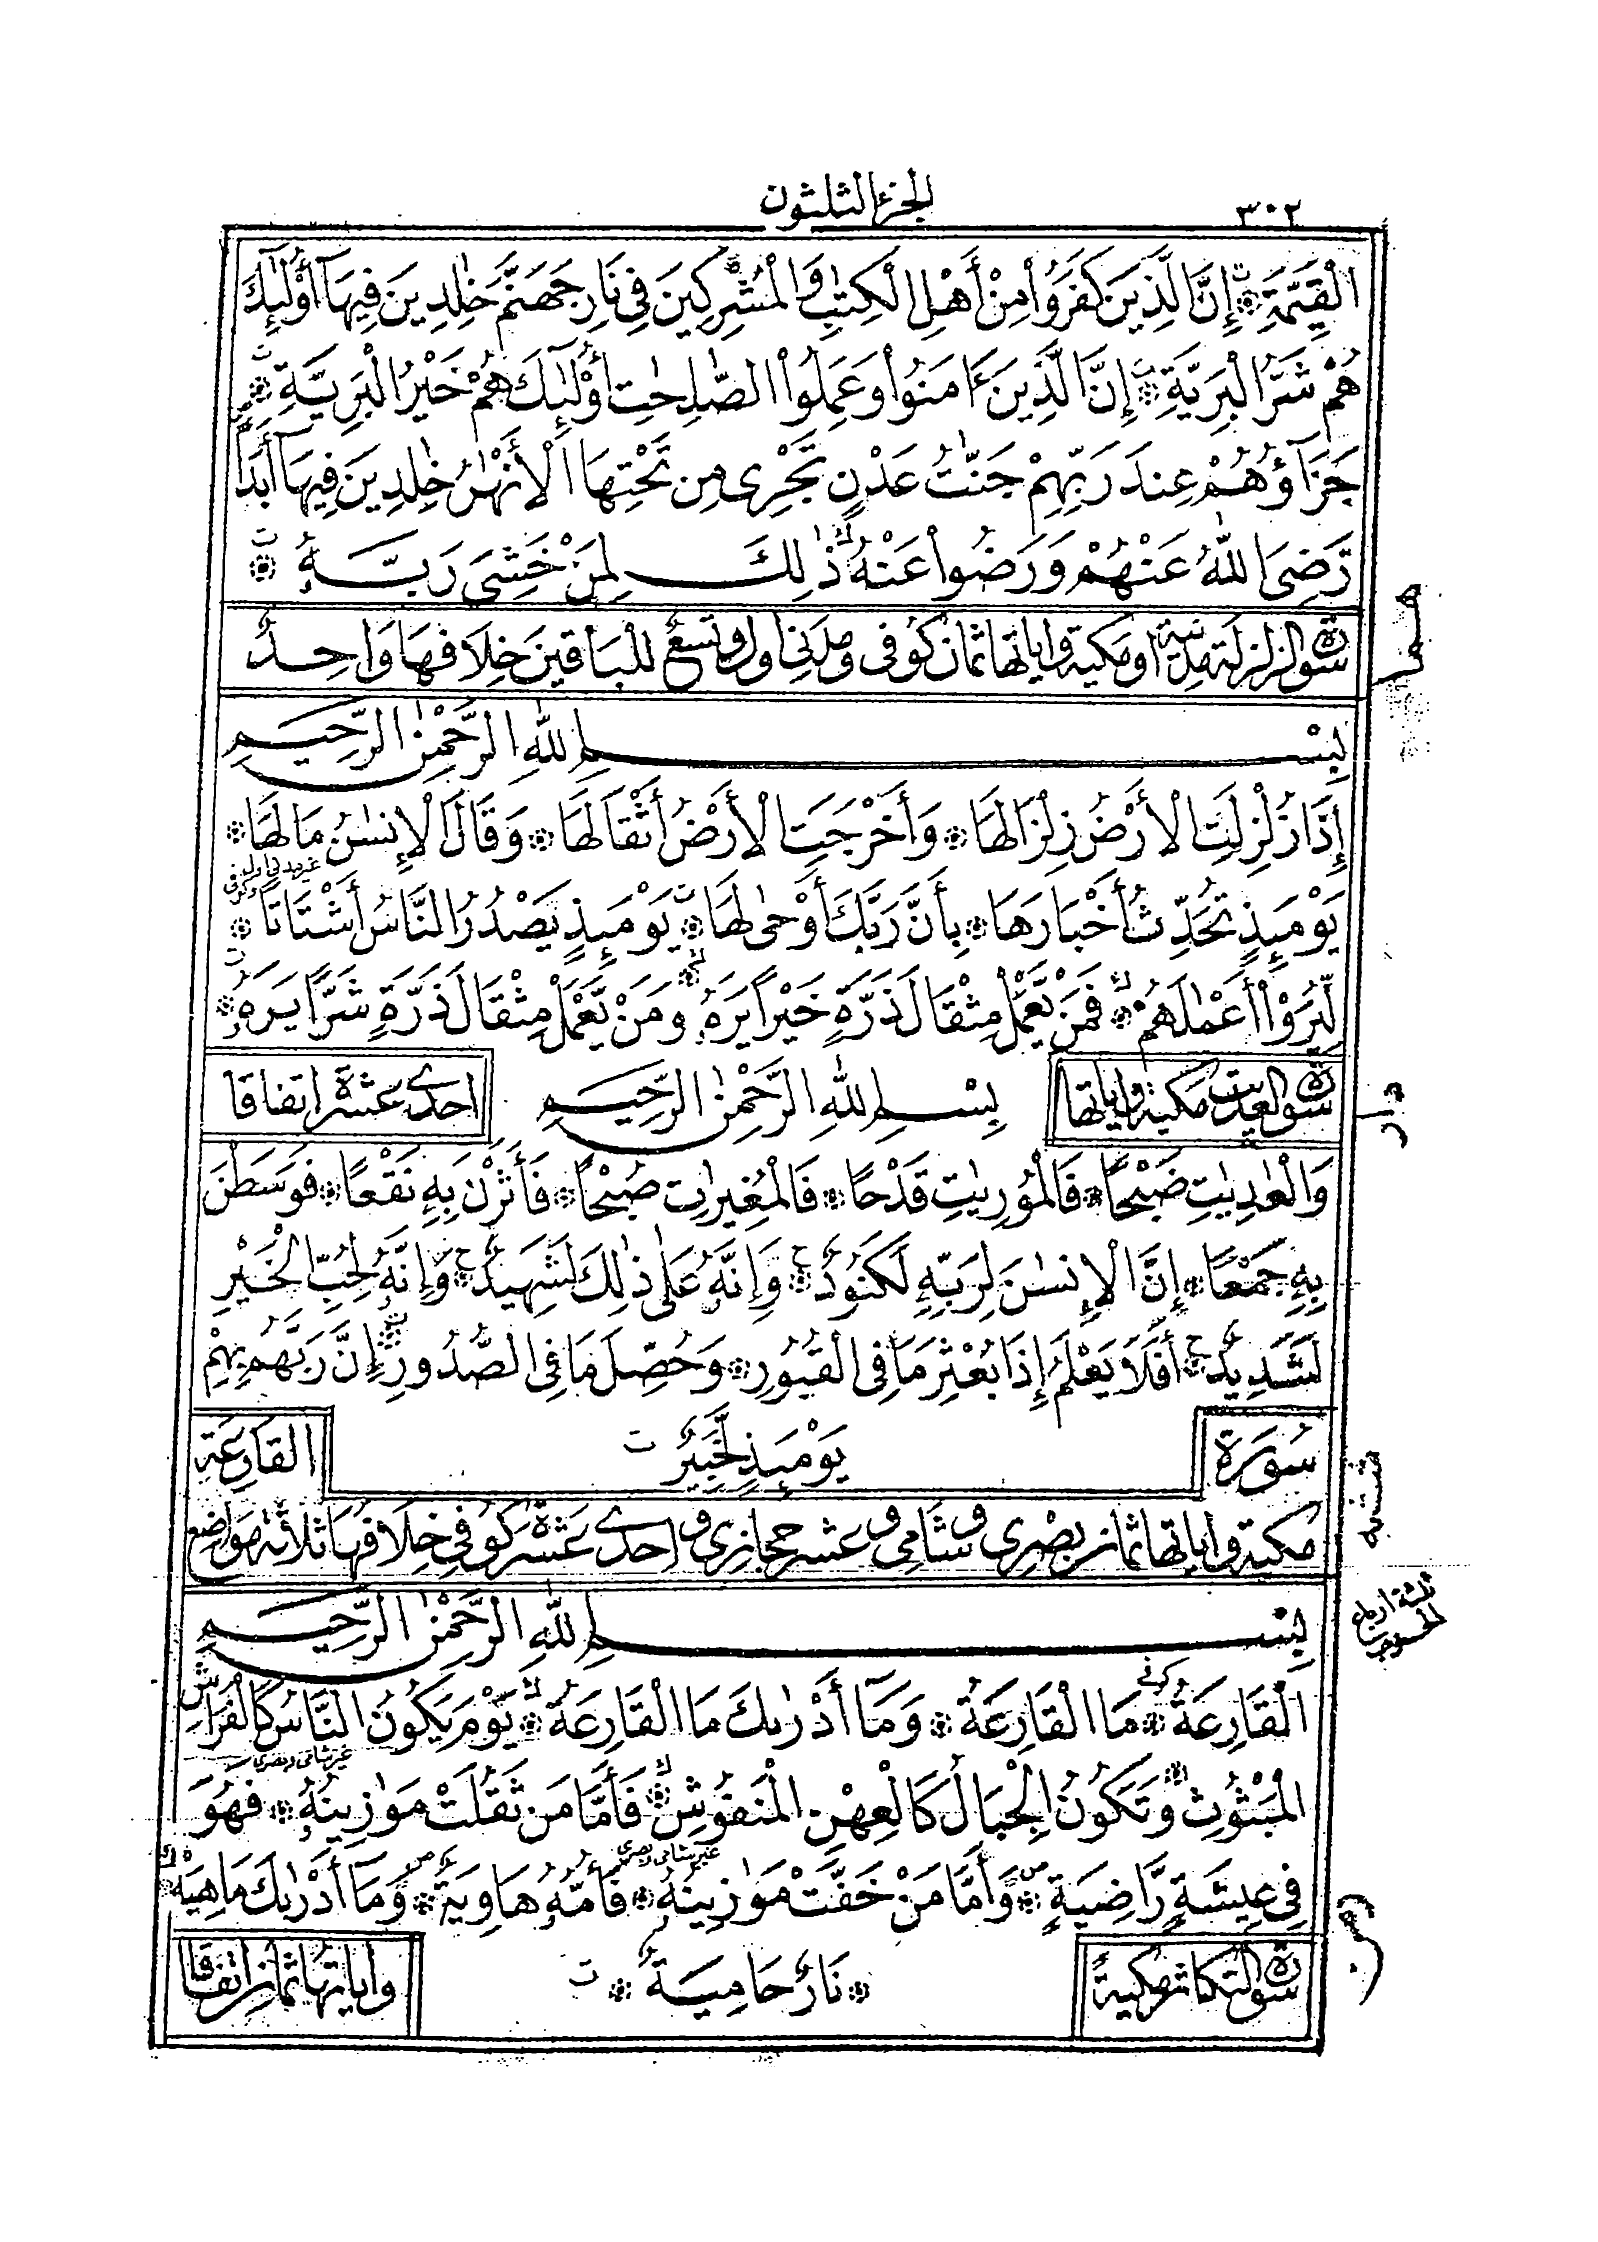 الجزء الثلثون
٣٠٢
الْقَيِّمَةِ ۝ إِنَّ الَّذِينَ كَفَرُوا مِنْ أَهْلِ الْكِتٰبِ وَالْمُشْرِكِينَ فِى نَارِ جَهَنَّمَ خٰلِدِينَ فِيهَآ أُولٰٓئِكَ
هُمْ شَرُّ الْبَرِيَّةِ ۝ إِنَّ الَّذِينَ ءَامَنُوا وَعَمِلُوا الصّٰلِحٰتِ أُولٰٓئِكَ هُمْ خَيْرُ الْبَرِيَّةِ ۝
جَزَآؤُهُمْ عِندَ رَبِّهِمْ جَنّٰتُ عَدْنٍ تَجْرِى مِن تَحْتِهَا الْأَنْهٰرُ خٰلِدِينَ فِيهَآ أَبَدًا
رَّضِىَ اللّٰهُ عَنْهُمْ وَرَضُوا عَنْهُ ذٰلِكَ لِمَنْ خَشِىَ رَبَّهُ ۝
سورة الزلزلة مدنية او مكية وآياتها ثمان كوفى ومدنى اول وتسع للباقين خلافها واحد
بِسْمِ اللّٰهِ الرَّحْمٰنِ الرَّحِيمِ
إِذَا زُلْزِلَتِ الْأَرْضُ زِلْزَالَهَا ۝ وَأَخْرَجَتِ الْأَرْضُ أَثْقَالَهَا ۝ وَقَالَ الْإِنسٰنُ مَا لَهَا ۝
يَوْمَئِذٍ تُحَدِّثُ أَخْبَارَهَا ۝ بِأَنَّ رَبَّكَ أَوْحٰى لَهَا ۝ يَوْمَئِذٍ يَصْدُرُ النَّاسُ أَشْتَاتًا ۝
لِّيُرَوْا أَعْمٰلَهُمْ ۝ فَمَن يَّعْمَلْ مِثْقَالَ ذَرَّةٍ خَيْرًا يَرَهُ ۝ وَمَن يَّعْمَلْ مِثْقَالَ ذَرَّةٍ شَرًّا يَرَهُ ۝
سورة العديت مكية وآياتها بِسْمِ اللّٰهِ الرَّحْمٰنِ الرَّحِيمِ احدى عشرة اتفاقا
وَالْعٰدِيٰتِ ضَبْحًا ۝ فَالْمُورِيٰتِ قَدْحًا ۝ فَالْمُغِيرٰتِ صُبْحًا ۝ فَأَثَرْنَ بِهِ نَقْعًا ۝ فَوَسَطْنَ
بِهِ جَمْعًا ۝ إِنَّ الْإِنسٰنَ لِرَبِّهِ لَكَنُودٌ ۝ وَإِنَّهُ عَلٰى ذٰلِكَ لَشَهِيدٌ ۝ وَإِنَّهُ لِحُبِّ الْخَيْرِ
لَشَدِيدٌ ۝ أَفَلَا يَعْلَمُ إِذَا بُعْثِرَ مَا فِى الْقُبُورِ ۝ وَحُصِّلَ مَا فِى الصُّدُورِ ۝ إِنَّ رَبَّهُم بِهِمْ
سُورَة يَوْمَئِذٍ لَّخَبِيرٌ القارعة
مكية وآياتها ثمان بصرى وشامى وعشر حجازى واحدى عشرة كوفى خلافها ثلاثة مواضع
ثلثة ارباع الحزب
بِسْمِ اللّٰهِ الرَّحْمٰنِ الرَّحِيمِ
الْقَارِعَةُ ۝ مَا الْقَارِعَةُ ۝ وَمَآ أَدْرٰىكَ مَا الْقَارِعَةُ ۝ يَوْمَ يَكُونُ النَّاسُ كَالْفَرَاشِ
الْمَبْثُوثِ ۝ وَتَكُونُ الْجِبَالُ كَالْعِهْنِ الْمَنفُوشِ ۝ فَأَمَّا مَن ثَقُلَتْ مَوٰزِينُهُ ۝ فَهُوَ
غير شامى وبصرى
فِى عِيشَةٍ رَّاضِيَةٍ ۝ وَأَمَّا مَنْ خَفَّتْ مَوٰزِينُهُ ۝ فَأُمُّهُ هَاوِيَةٌ ۝ وَمَآ أَدْرٰىكَ مَا هِيَهْ ۝
غير شامى وبصرى
سورة التكاثر مكية ۝ نَارٌ حَامِيَةٌ ۝ وآياتها ثمان اتفاقا